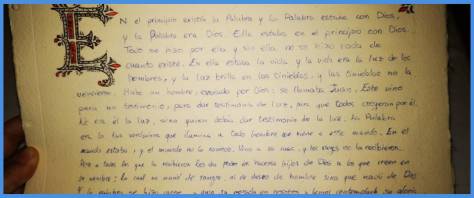 EN el principio existía la Palabra y la Palabra estaba con Dios,
y la Palabra era Dios. Ella estaba en el principio con Dios.
Todo se hizo por ella y sin ella no se hizo nada de
cuanto existe. En ella estaba la vida y la vida era la luz de los
hombres, y la luz brilla en las tinieblas, y las tinieblas no la
vencieron. Hubo un hombre enviado por Dios: se llamaba Juan. Este vino
para un testimonio, para dar testimonio de la luz, para que todos creyeran por él.
No era él la luz, sino quien debía dar testimonio de la luz. La Palabra
era la luz verdadera que ilumina a todo hombre que viene a este mundo. En el
mundo estaba, y el mundo no la conoció. Vino a su casa, y los suyos no la recibieron.
Pero a todos los que la recibieron les dio poder de hacerse hijos de Dios a los que creen en
su nombre; la cual no nació de sangre, ni de deseo de hombre sino que nació de Dios
Y la Palabra se hizo carne, y puso su morada en nosotros, y hemos contemplado su gloria